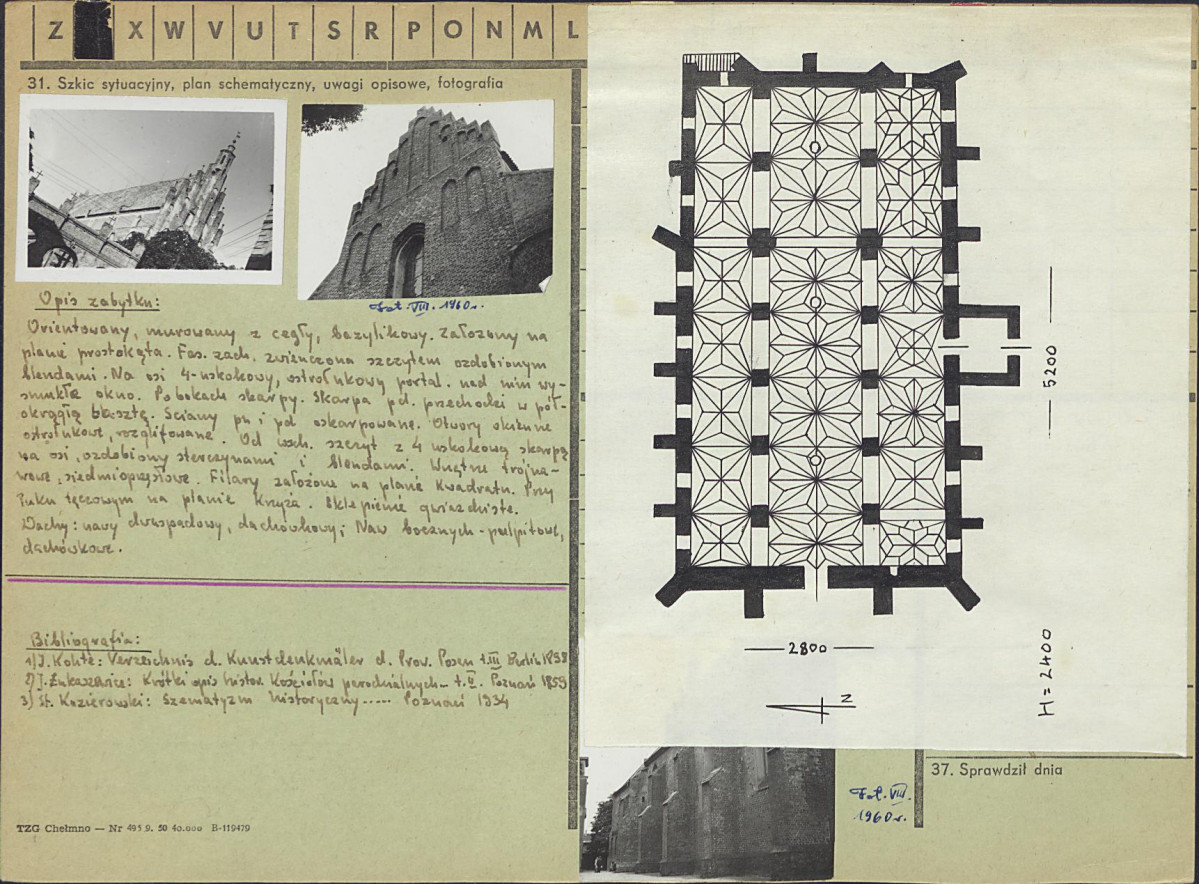 Z X W V U T S R P O N M L
31. Szkic sytuacyjny, plan schematyczny, uwagi opisowe, fotografia
Fot. VIII. 1960r.
Opis zabytku:
Orientowany, murowany z cegły, bazylikowy. Założony na
planie prostokąta. Fas. zach. zwieńczona szczytem ozdobionym
blendami. Na osi 4-uskokowy, ostrołukowy portal. nad nim wy-
smukłe okno. Po bokach skarpy. Skarpa pd. przechodzi w pół-
okrągłą basztę. Ściany pn i pd oskarpowane. Otwory okienne
ostrołukowe, rozglifowane. Od wsch. szczyt z 4 uskokową skarpą
na osi, ozdobiony sterczynami i blendami. Wnętrze trójna-
wowe, siedmioprzęsłowe. Filary założone na planie kwadratu. Przy
łuku tęczowym na planie krzyża. Sklepienie gwiaździste.
Dachy: nawy dwuspadowy, dachówkowy; Naw bocznych - pulpitowe,
dachówkowe.
Bibliografia:
1) J. Kohte: Verzeichnis d. Kunstdenkmäler d. Prov. Posen t.III Berlin 1898
2) J. Łukaszewicz: Krótki opis histor. Kościołów parochialnych - t.II. Poznań 1859
3) St. Kozierowski: Szematyzm historyczny ..... Poznań 1934
TZG Chełmno — Nr 495 9. 50 40.000 B-119479
5200
2800
N
H = 2400
Fot. VIII.
1960r.
37. Sprawdził dnia